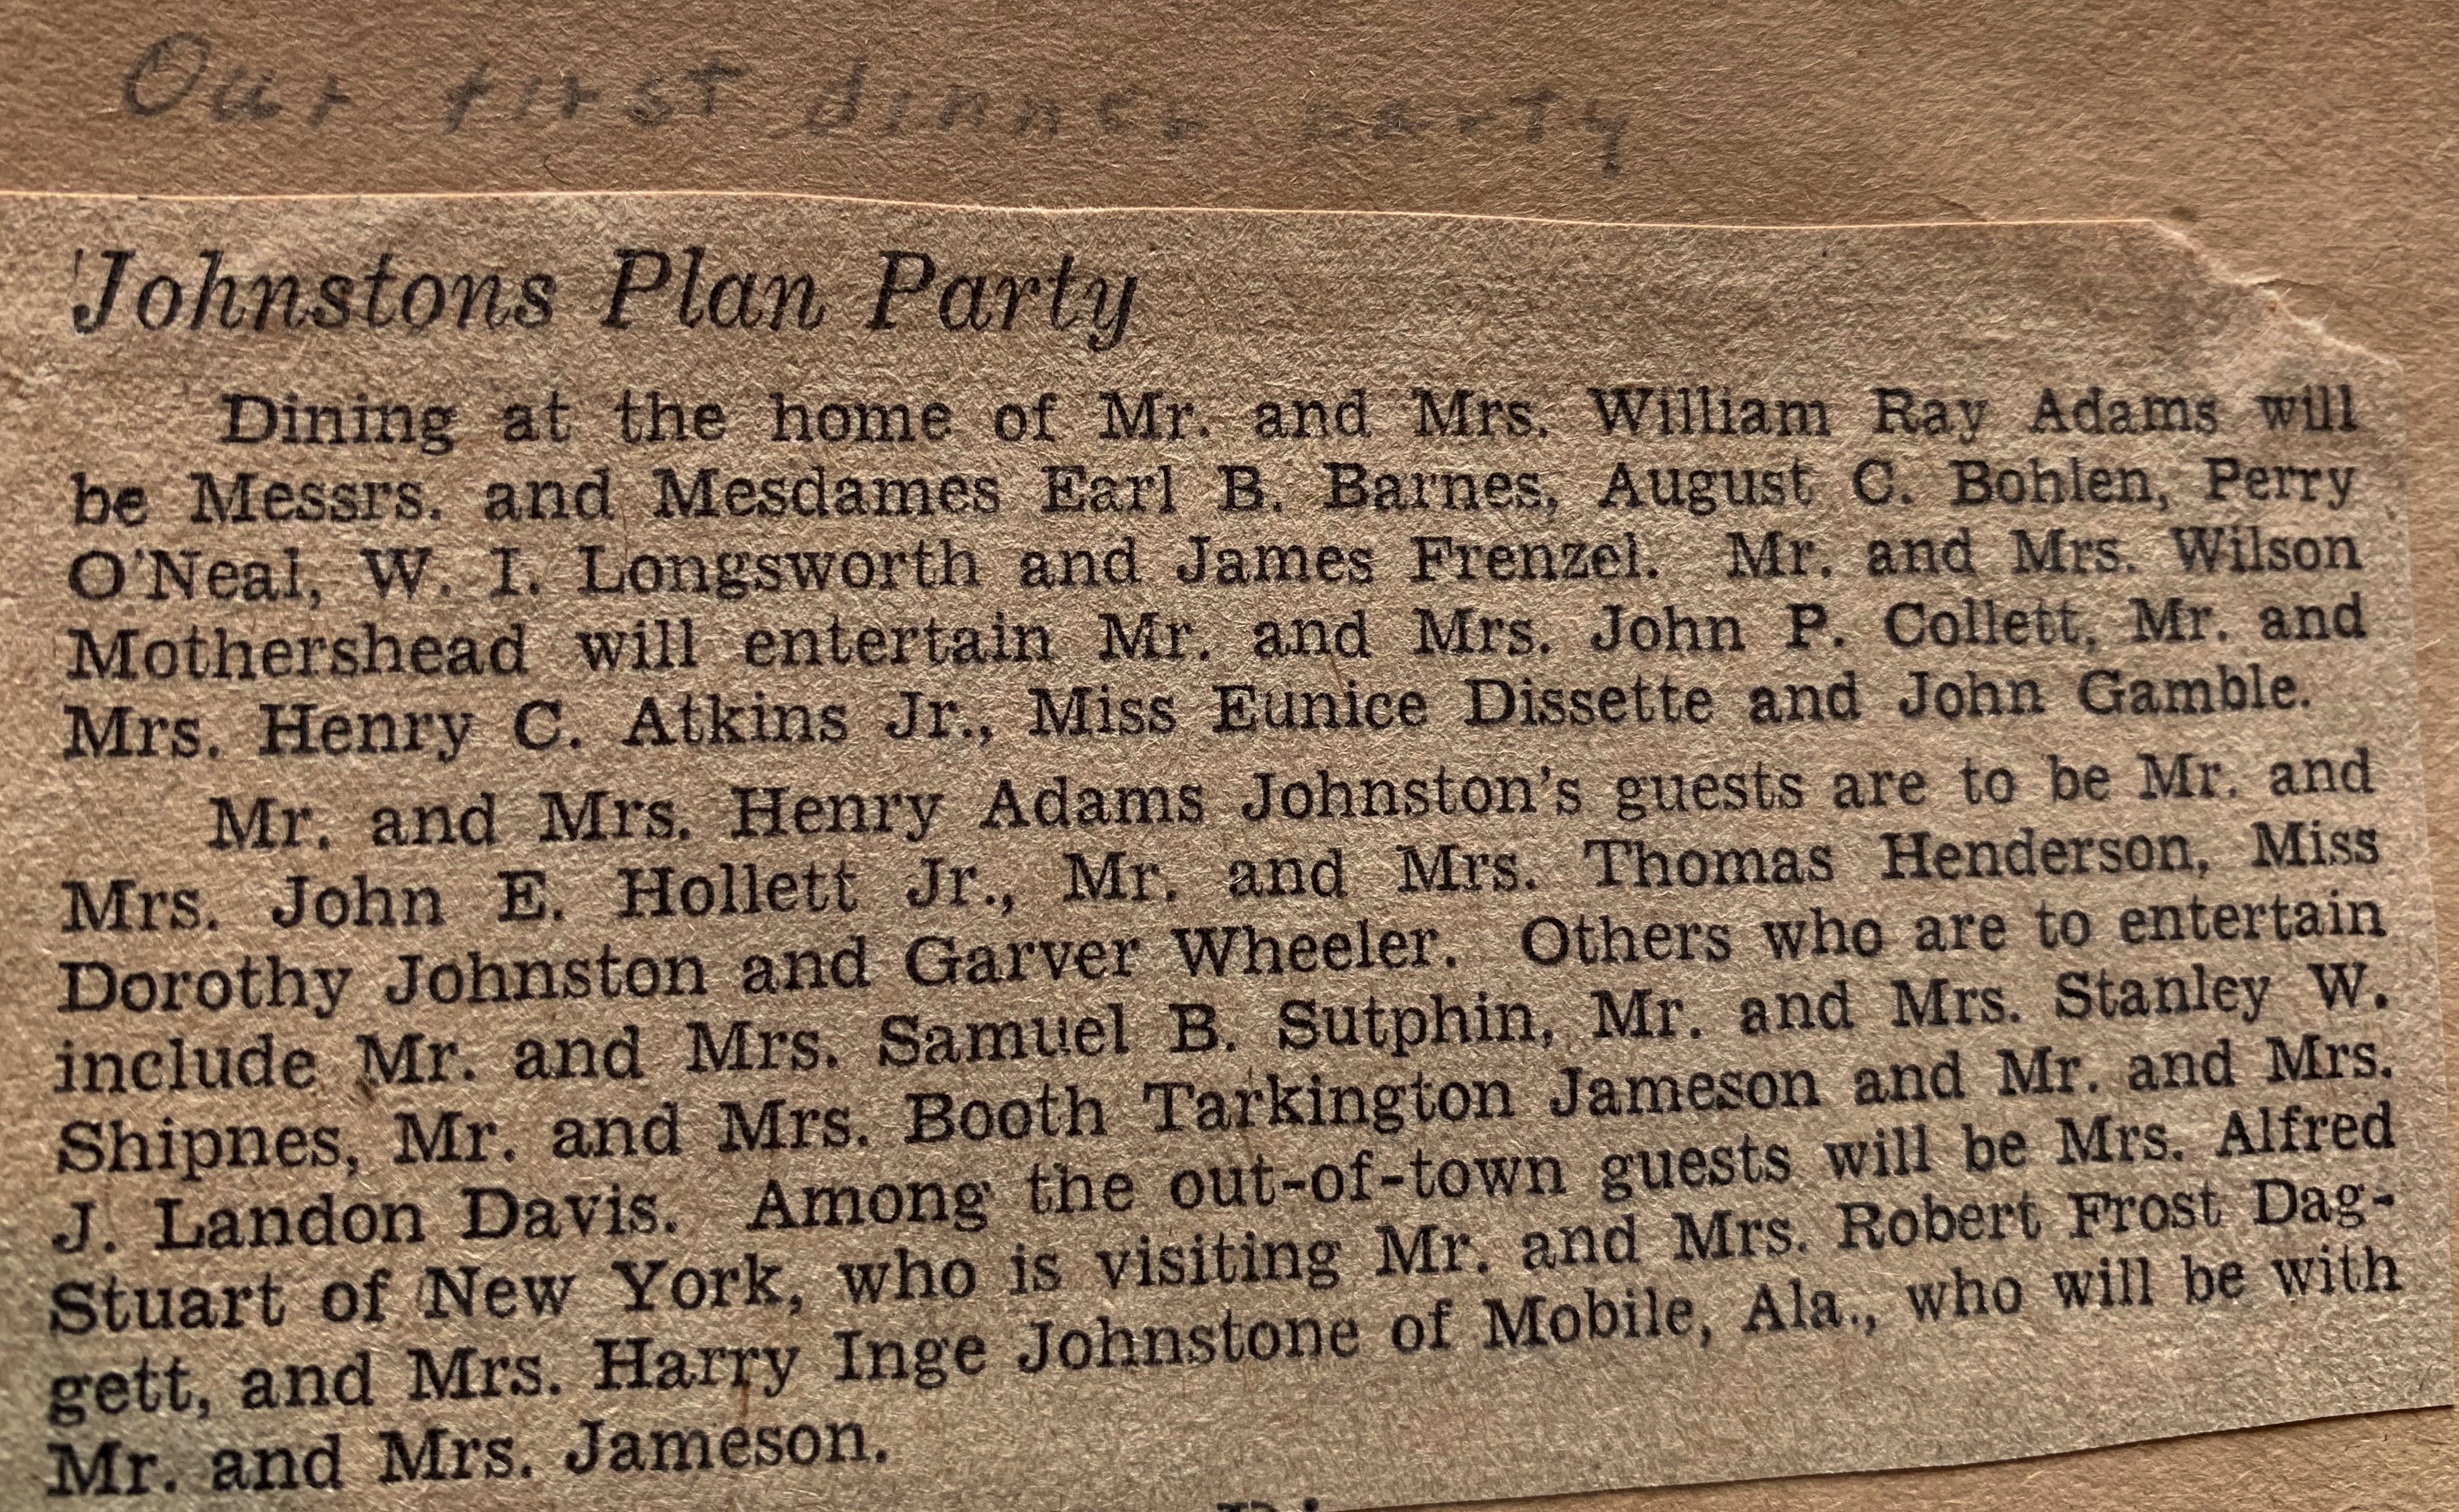 Our first dinner party
Johnstons Plan Party
Dining at the home of Mr. and Mrs. William Ray Adams will
be Messrs. and Mesdames Earl B. Barnes, August C. Bohlen, Perry
O'Neal, W. I. Longsworth and James Frenzel. Mr. and Mrs. Wilson
Mothershead will entertain Mr. and Mrs. John P. Collett, Mr. and
Mrs. Henry C. Atkins Jr., Miss Eunice Dissette and John Gamble.
Mr. and Mrs. Henry Adams Johnston's guests are to be Mr. and
Mrs. John E. Hollett Jr., Mr. and Mrs. Thomas Henderson, Miss
Dorothy Johnston and Garver Wheeler. Others who are to entertain
include Mr. and Mrs. Samuel B. Sutphin, Mr. and Mrs. Stanley W.
Shipnes, Mr. and Mrs. Booth Tarkington Jameson and Mr. and Mrs.
J. Landon Davis. Among the out-of-town guests will be Mrs. Alfred
Stuart of New York, who is visiting Mr. and Mrs. Robert Frost Dag-
gett, and Mrs. Harry Inge Johnstone of Mobile, Ala., who will be with
Mr. and Mrs. Jameson.